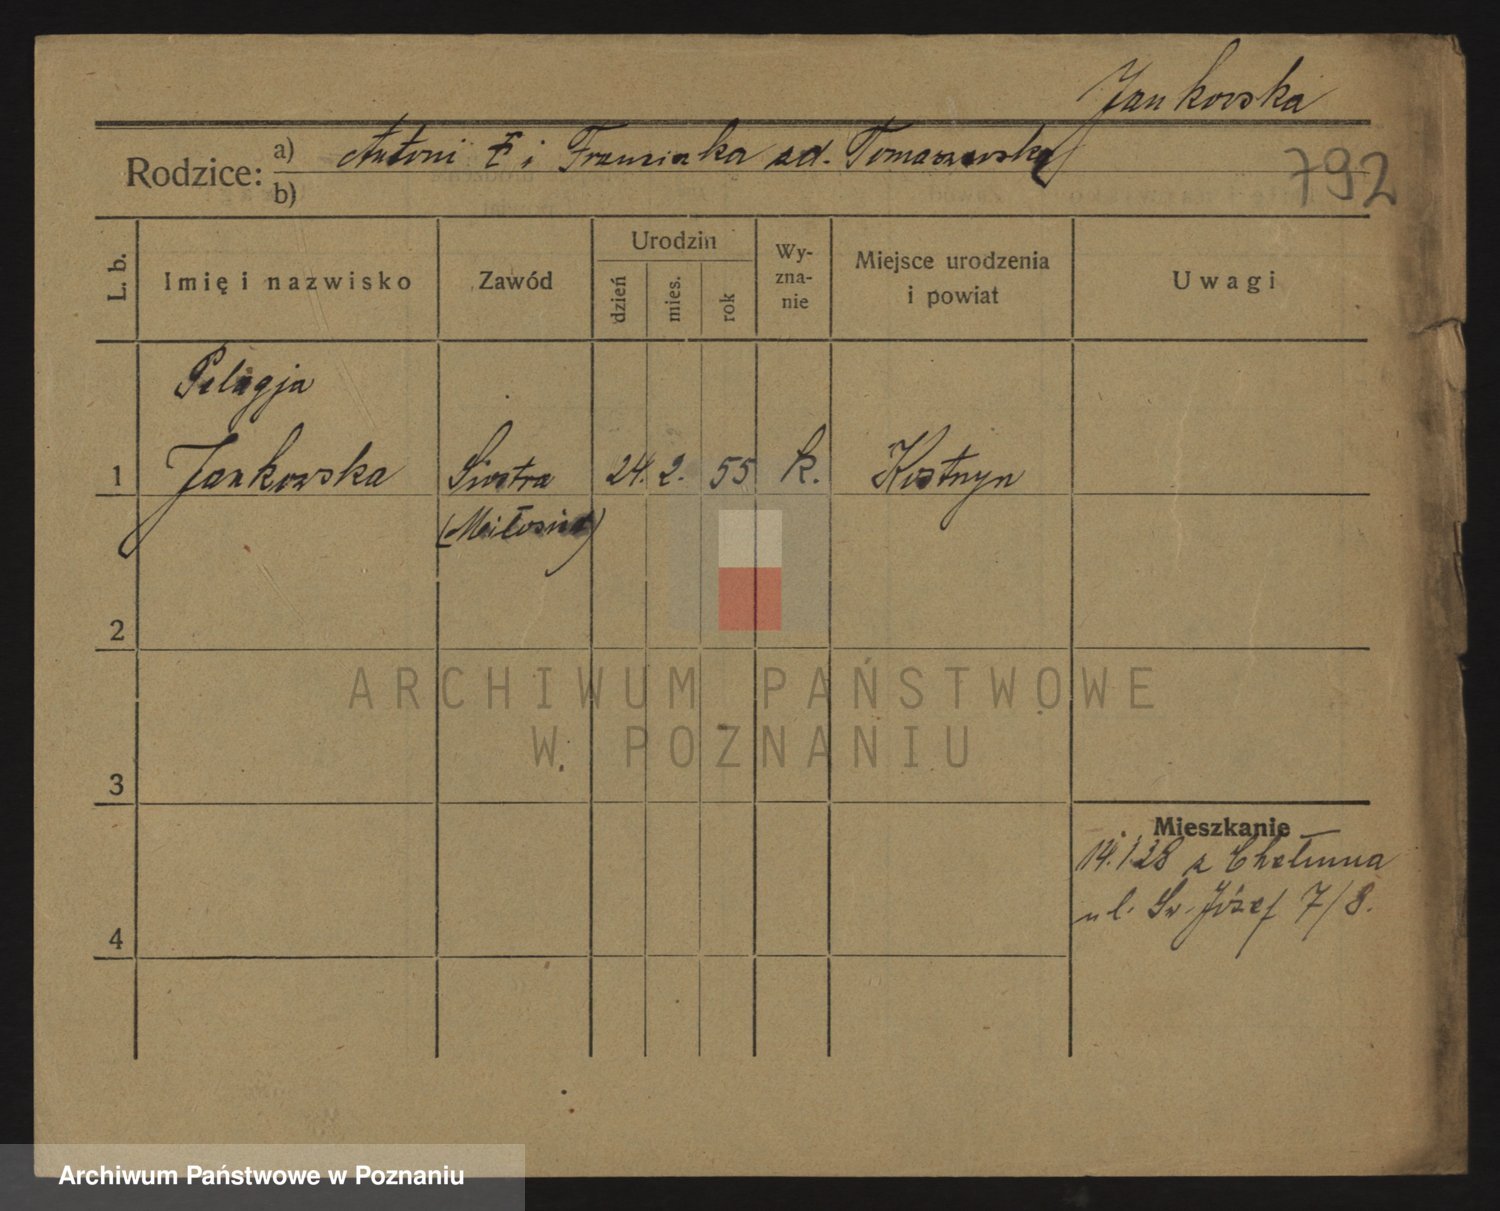 Jankowska
Rodzice: a) Antoni i Franciszka zd. Tomaszewska
b)
792
L. b.
Imię i nazwisko
Zawód
Urodzin
dzień
mies.
rok
Wy-
zna-
nie
Miejsce urodzenia
i powiat
Uwagi
Pelagja
1 Jankowska Siostra 24. 2. 55 k. Kostrzyn
(Miłosierdzia)
2
3
Mieszkanie
14.1.28 z Chełmna
ul. Św. Józef 7/8.
4
ARCHIWUM PAŃSTWOWE
W POZNANIU
Archiwum Państwowe w Poznaniu